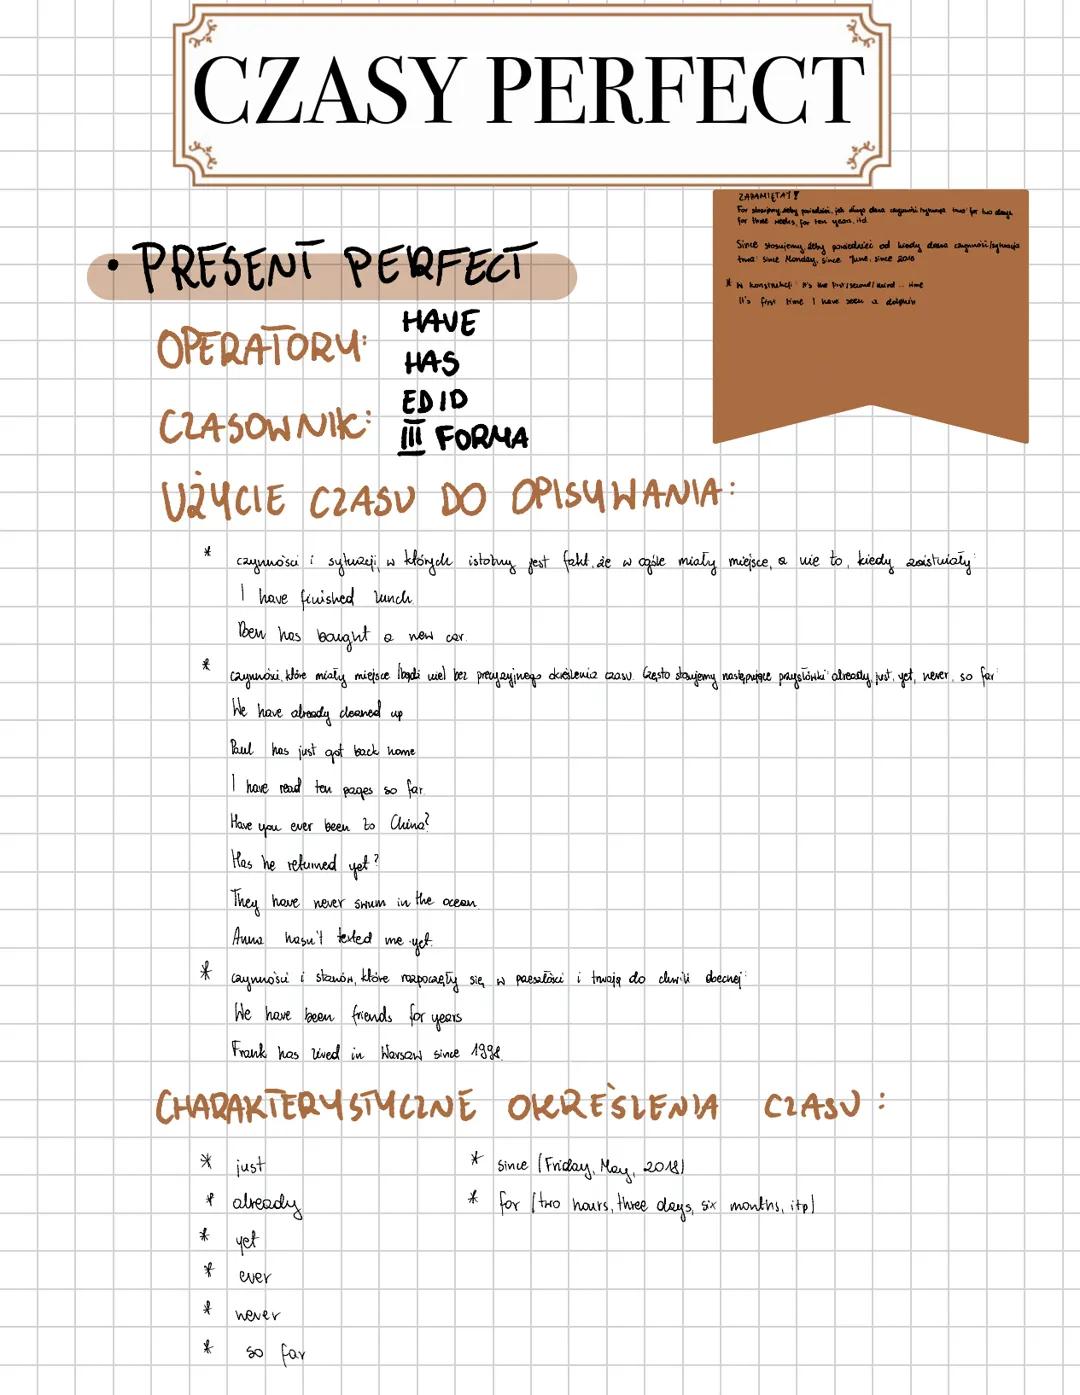 CZASY PERFECT
ZAPAMIĘTAJ!
For stosujemy, żeby powiedzieć, jak długo dana czynność/sytuacja trwa: for two days,
for three weeks, for ten years, itd.
Since stosujemy, żeby powiedzieć od kiedy dana czynność/sytuacja
trwa: since Monday, since June, since 2018
* W konstrukcji: it's the first/second/third ... time
It's first time I have seen a dolphin
• PRESENT PERFECT
OPERATORY:
HAVE
HAS
CZASOWNIK:
ED ID
III FORMA
UŻYCIE CZASU DO OPISYWANIA:
* czynności i sytuacji, w których istotny jest fakt, że w ogóle miały miejsce, a nie to, kiedy zaistniały:
I have finished lunch.
Ben has bought a new car.
* czynności, które miały miejsce (bądź nie) bez precyzyjnego określenia czasu. Często stosujemy następujące przysłówki: already, just, yet, never, so far:
We have already cleaned up
Paul has just got back home
I have read ten pages so far.
Have you ever been to China?
Has he returned yet?
They have never swum in the ocean.
Anna hasn't texted me yet.
* czynności i stanów, które rozpoczęły się w przeszłości i trwają do chwili obecnej:
We have been friends for years
Frank has lived in Warsaw since 1998.
CHARAKTERYSTYCZNE OKREŚLENIA CZASU:
* just
* already
* yet
* ever
* never
* so far
* since (Friday, May, 2018)
* for (two hours, three days, six months, itp)